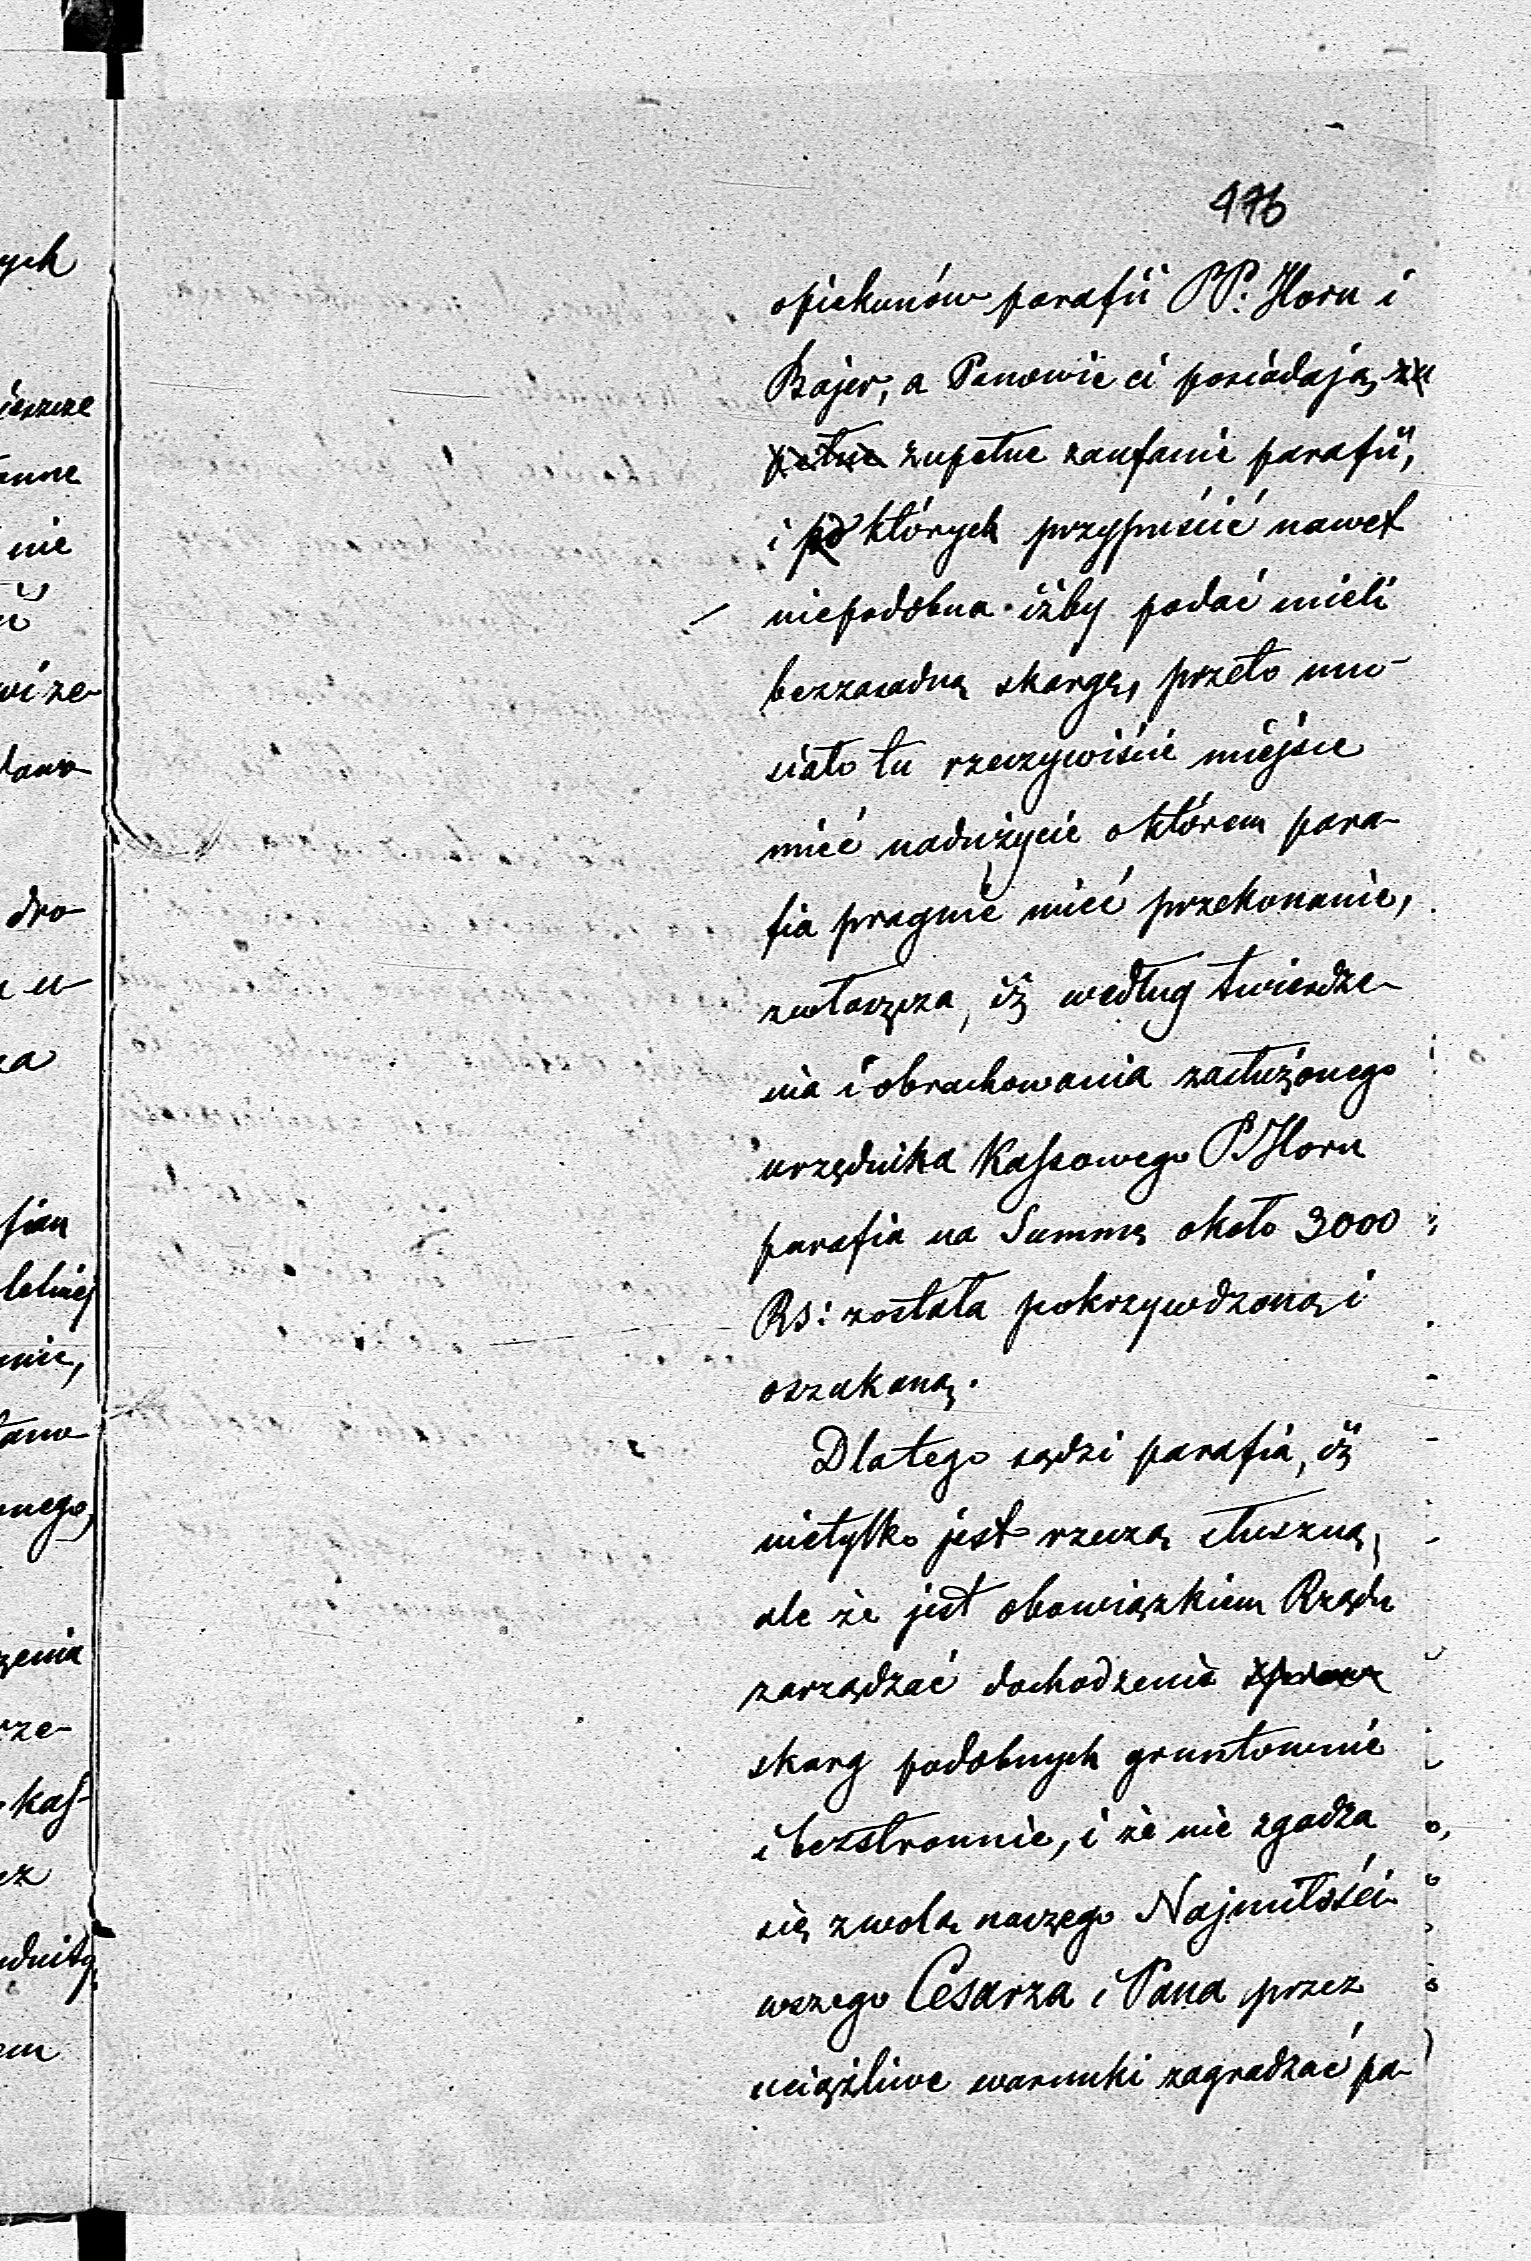 476
opiekunów parafii PP. Horn i
Bajer, a Panowie ci posiadają zu
pełne zupełne zaufanie parafii,
i po których przypuścić nawet
niepodobna iżby podać mieli
bezzasadną skargę, przeto mu-
siało tu rzeczywiście miejsce
mieć nadużycie o którem para-
fia pragnie mieć przekonanie,
zwłaszcza, iż według twierdze-
nia i obrachowania zasłużonego
urzędnika Kassowego P. Horn
parafia na Summę około 3000
Rs: została pokrzywdzoną i
oszukaną.
Dlatego sądzi parafia, iż
nietylko jest rzeczą słuszną,
ale że jest obowiązkiem Rządu
zarządzać dochodzenie
skarg podobnych gruntownie
i bezstronnie, i że nie zgadza
się z wolą naszego Najmiłości-
wszego Cesarza i Pana przez
uciążliwe warunki zagradzać pa-